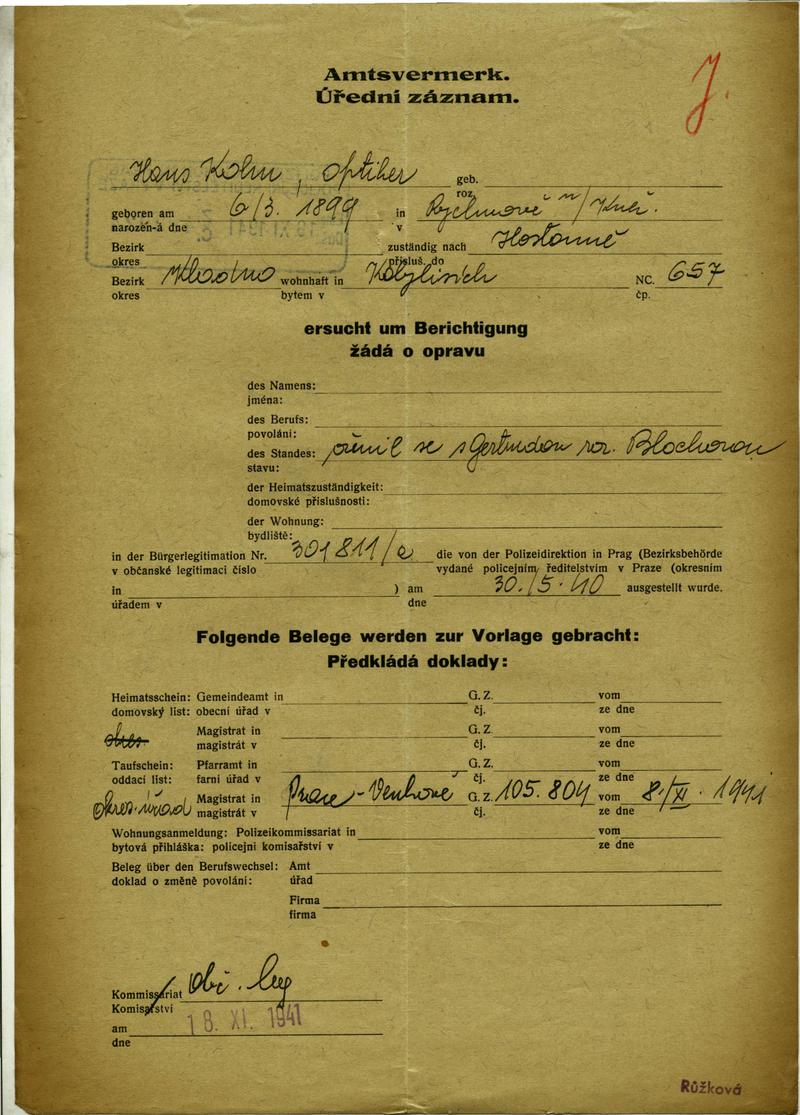 Amtsvermerk.
Úřední záznam.
J.
Hans Kohn, optiker geb.
roz.
geboren am 6/3. 1899 in Rychnově n/Kněž.
narozen-á dne v
Bezirk zuständig nach Hostouně
okres přísluš. do
Bezirk Kladno wohnhaft in Kobylisích NC. 657
okres bytem v čp.
ersucht um Berichtigung
žádá o opravu
des Namens:
jména:
des Berufs:
povolání:
des Standes: oženil se s Gertrudou roz. Blochovou
stavu:
der Heimatszuständigkeit:
domovské příslušnosti:
der Wohnung:
bydliště:
in der Bürgerlegitimation Nr. 301811/a die von der Polizeidirektion in Prag (Bezirksbehörde
v občanské legitimaci číslo vydané policejním ředitelstvím v Praze (okresním
in ) am 30./5. 40 ausgestellt wurde.
úřadem v dne
Folgende Belege werden zur Vorlage gebracht:
Předkládá doklady:
Heimatsschein: Gemeindeamt in G. Z. vom
domovský list: obecní úřad v čj. ze dne
okres Magistrat in G. Z. vom
magistrát v čj. ze dne
Taufschein: Pfarramt in G. Z. vom
oddací list: farní úřad v čj. ze dne
Okres. úřad Magistrat in Praze-Venkově G. Z. 105.804 vom 8./XI. 1941
magistrát v čj. ze dne
Wohnungsanmeldung: Polizeikommissariat in vom
bytová přihláška: policejní komisařství v ze dne
Beleg über den Berufswechsel: Amt
doklad o změně povolání: úřad
Firma
firma
Kommissariat Obč. leg
Komisařství
am 18. XI. 1941
dne
Růžková